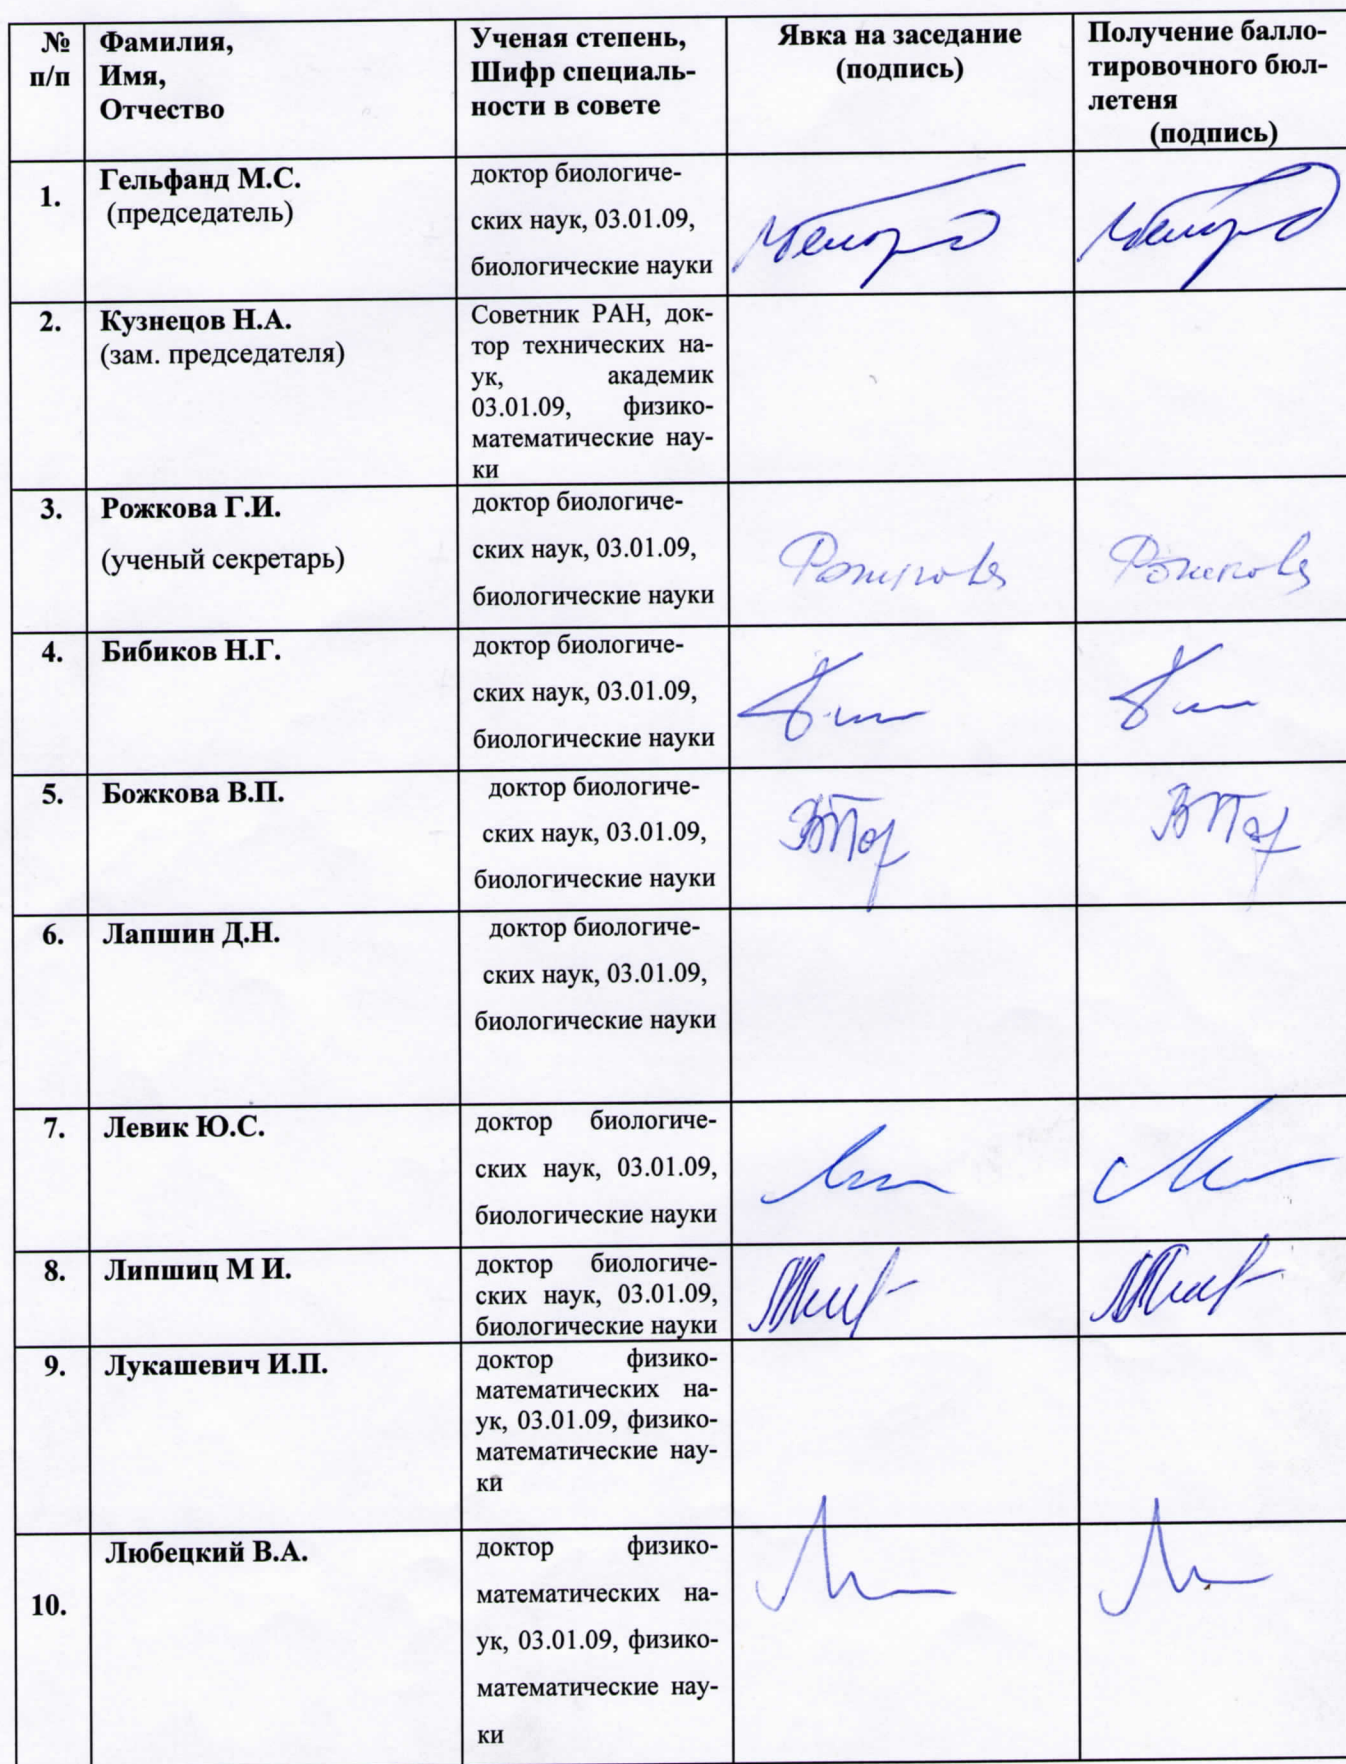 №
п/п
Фамилия,
Имя,
Отчество
Ученая степень,
Шифр специаль-
ности в совете
Явка на заседание
(подпись)
Получение балло-
тировочного бюл-
летеня
(подпись)
1.
Гельфанд М.С.
(председатель)
доктор биологиче-
ских наук, 03.01.09,
биологические науки
2.
Кузнецов Н.А.
(зам. председателя)
Советник РАН, док-
тор технических на-
ук, академик
03.01.09, физико-
математические нау-
ки
3.
Рожкова Г.И.
(ученый секретарь)
доктор биологиче-
ских наук, 03.01.09,
биологические науки
Рожкова
Рожкова
4.
Бибиков Н.Г.
доктор биологиче-
ских наук, 03.01.09,
биологические науки
5.
Божкова В.П.
доктор биологиче-
ских наук, 03.01.09,
биологические науки
6.
Лапшин Д.Н.
доктор биологиче-
ских наук, 03.01.09,
биологические науки
7.
Левик Ю.С.
доктор биологиче-
ских наук, 03.01.09,
биологические науки
8.
Липшиц М И.
доктор биологиче-
ских наук, 03.01.09,
биологические науки
9.
Лукашевич И.П.
доктор физико-
математических на-
ук, 03.01.09, физико-
математические нау-
ки
10.
Любецкий В.А.
доктор физико-
математических на-
ук, 03.01.09, физико-
математические нау-
ки